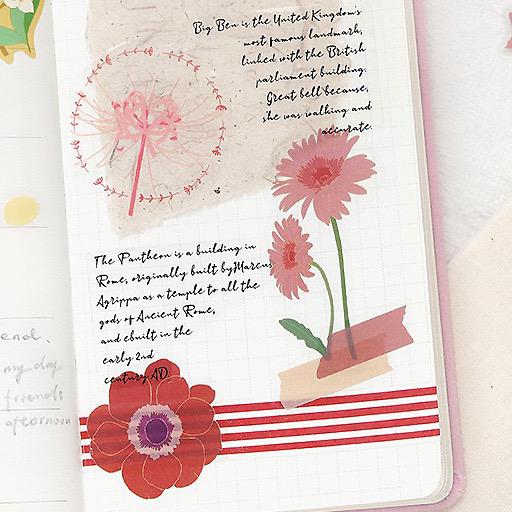 Big Ben is the United Kingdom's
most famous landmark,
linked with the British
parliament building.
Great bell because,
she was walking and
accurate.
The Pantheon is a building in
Rome, originally built by Marcus
Agrippa as a temple to all the
gods of Ancient Rome,
and ebuilt in the
early 2nd
century AD
end.
my day
friends
afternoon